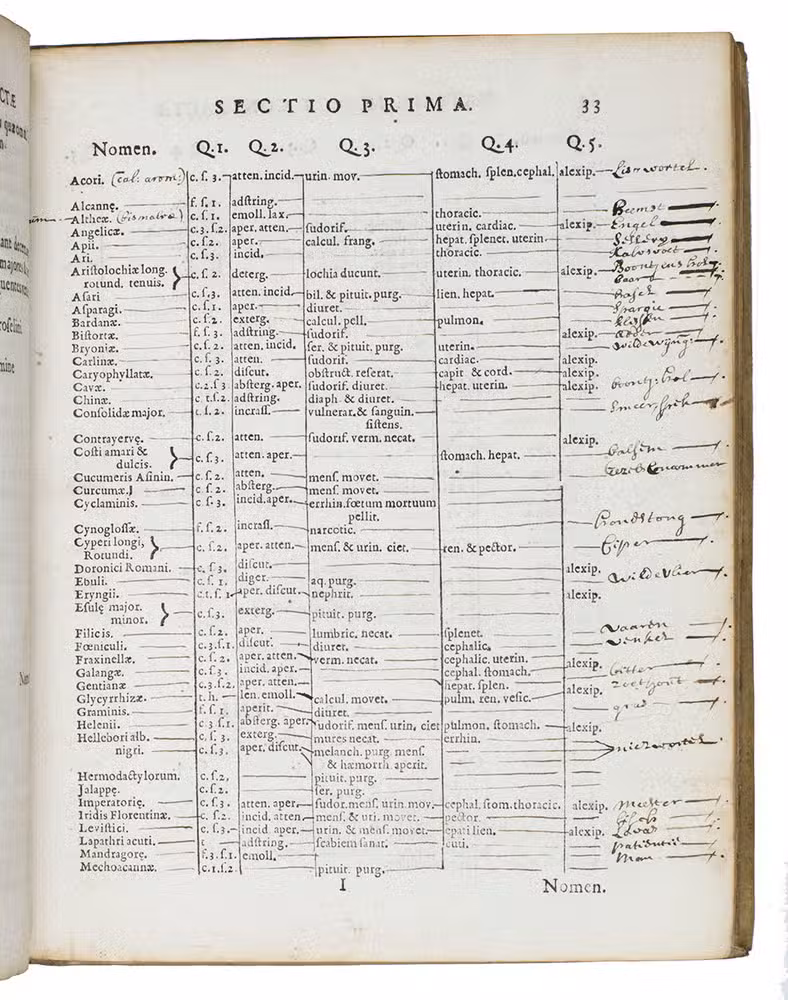 CTÆ
SECTIO PRIMA. 33
Nomen. Q.1. Q.2. Q.3. Q.4. Q.5.
Acori. (cal: arom:) c. ſ. 3. atten. incid. urin. mov. ſtomach. ſplen. cephal. alexip.
Alcannę. f. ſ. 1. adſtring.
Altheæ. (bismalva) c. ſ. 1. emoll. lax. thoracic.
Angelicæ. c.3. ſ.2. aper. atten. ſudorif. uterin. cardiac. alexip. Engel
Apii. c. ſ.2. aper. calcul. frang. hepat. ſplenet. uterin.
Ari. c. ſ.3. incid. thoracic.
Ariſtolochiæ long. rotund. tenuis. c. ſ. 2. deterg. lochia ducunt. uterin. thoracic. alexip.
Aſari c. ſ.3. atten. incid. bil. & pituit. purg. lien. hepat.
Aſparagi. c. ſ.1. aper. diuret.
Bardanæ. c. ſ.2. exterg. calcul. pell. pulmon.
Biſtortæ. f. ſ. 3. adſtring. ſudorif. alexip.
Bryoniæ. c. ſ. 2. atten. incid. ſer. & pituit. purg. uterin.
Carlinæ. c. ſ. 3. atten. ſudorif. cardiac. alexip.
Caryophyllatæ. c. ſ. 2. diſcut. obſtruct. reſerat. capit & cord. alexip.
Cavæ. c.2. ſ 3 abſterg. aper. ſudorif. diuret. hepat. uterin. alexip.
Chinæ. c. t.ſ.2. adſtring. diaph & diuret.
Conſolidæ major. t. ſ. 2. incraſſ. vulnerat. & ſanguin.
ſiſtens.
Contrayervę. c. ſ.2. atten. ſudorif. verm. necat. alexip.
Coſti amari & dulcis. c. ſ.3. atten. aper. ſtomach. hepat.
Cucumeris Aſinin. c. ſ. 2. atten. menſ. movet.
Curcumæ. c. ſ. 2. abſterg. menſ. movet.
Cyclaminis. c. ſ. 3. incid. aper. errhin. fœtum mortuum
pellit.
Cynogloſſæ. f. ſ. 2. incraſſ. narcotic. hondstong
Cyperi longi, Rotundi. c. ſ.2. aper. atten. menſ. & urin. ciet. ren. & pector. Ciper
Doronici Romani. c. ſ. 3. diſcut. alexip.
Ebuli. c. ſ. 1. diger. aq. purg. wilde vlier
Eryngii. c.t. ſ. 1 aper. diſcut. nephrit. alexip.
Eſulę major. minor. c. ſ.3. exterg. pituit. purg.
Filicis. c. ſ.2. aper. lumbric. necat. ſplenet. vaaren
Fœniculi. c.3.ſ.1. diſcut. diuret. cephalic. venkel
Fraxinellæ. c. ſ. 2. aper. atten. verm. necat. cephalic. uterin. alexip.
Galangæ. c. ſ. 3. incid. aper. cephal. ſtomach.
Gentianæ c.3.ſ.2. aper. atten. hepat. ſplen. alexip. bitter
Glycyrrhizæ. t. h. len. emoll. calcul. movet. pulm. ren. veſic. zoethout
Graminis. f. ſ. 1. aperit. diuret. gras
Helenii. c 3 ſ. 1. abſterg. aper. ſudorif. menſ. urin. ciet pulmon. ſtomach. alexip.
Hellebori alb. c. ſ. 3. exterg. mures necat. errhin.
nigri. c. ſ.3. aper. diſcut. melanch. purg. menſ. niezwortel
& hæmorrh. aperit.
Hermodactylorum. c. ſ.2, pituit. purg.
Jalappę. c. ſ.2. ſer. purg.
Imperatorię. c. ſ.3. atten. aper. ſudor. menſ. urin. mov. cephal. ſtom. thoracic. alexip. meester
Iridis Florentinæ. c. ſ.2. incid. atten. menſ. & uri. movet. pector.
Leviſtici. c. ſ.3. incid aper. urin. & menſ. movet. epati lien. alexip. Lavas
Lapathri acuti. t adſtring. ſcabiem ſanat. cuti. patientie
Mandragorę. f.3. ſ.1. emoll. Man
Mechoacannæ. c.1.ſ.2. pituit. purg.
I Nomen.